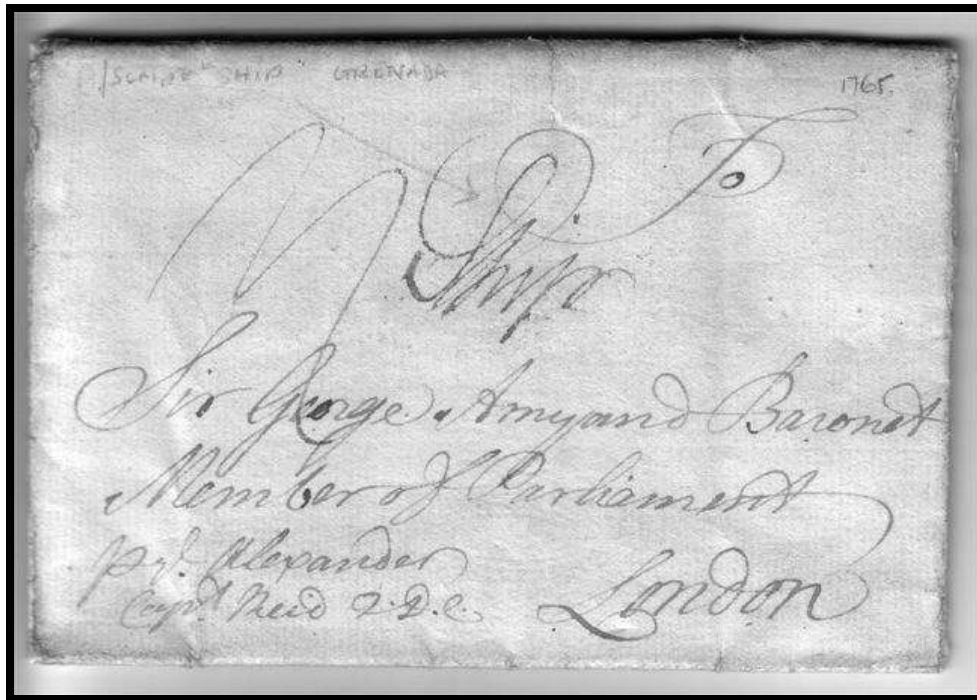 SHIP GRENADA 1765.
To
Ship
Sir George Amyand Baronet
Member of Parliement
p yᵉ. Alexander
Capᵗ. Reid Q.D.C.
London